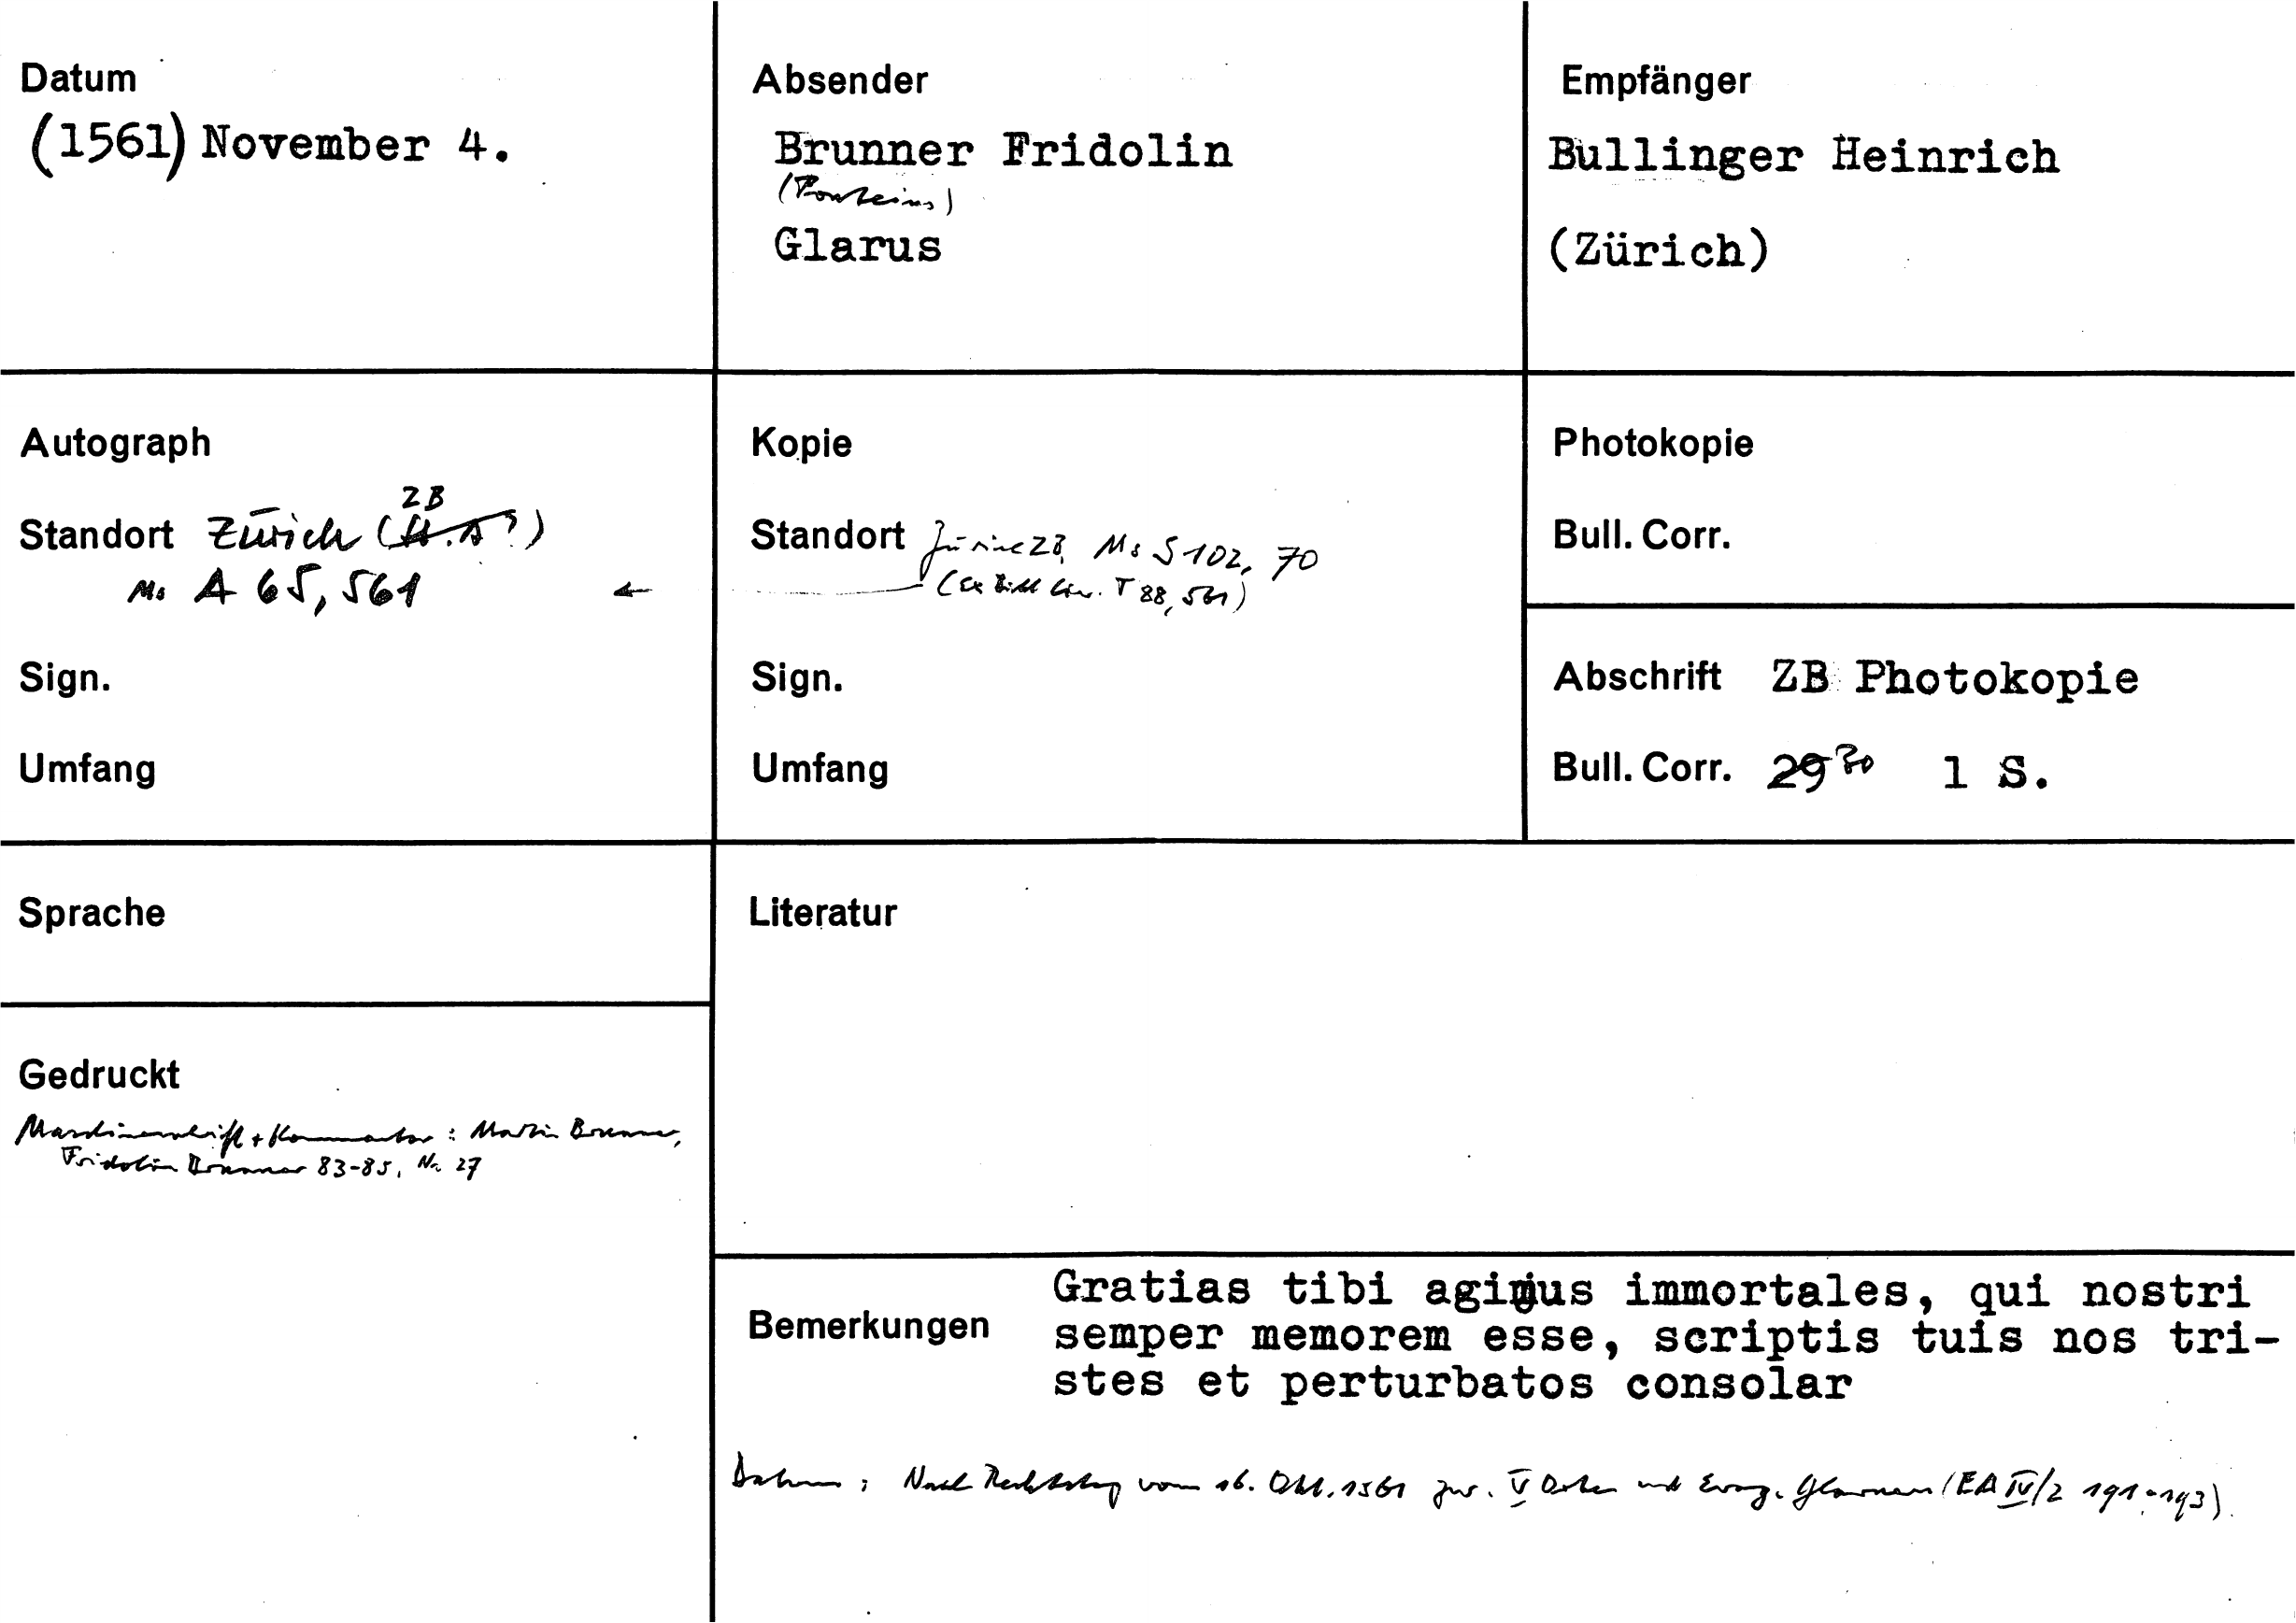 Datum
(1561) November 4.
Absender
Brunner Fridolin
(Fonteius)
Glarus
Empfänger
Bullinger Heinrich
(Zürich)
Autograph
Standort Zürich (ZB)
Ms A 65, 561 ←
Sign.
Umfang
Kopie
Standort Zürich ZB, Ms S 102, 70
T 88, 561)
Sign.
Umfang
Photokopie
Bull. Corr.
Abschrift ZB Photokopie
Bull. Corr. 29 30 1 S.
Sprache
Gedruckt
Maschinenschrift + Kommentar: Martin Brunner,
Fridolin Brunner 83-85, Nr. 27
Literatur
Bemerkungen
Gratias tibi agimus immortales, qui nostri
semper memorem esse, scriptis tuis nos tri-
stes et perturbatos consolar
Datum: Nach Rechtstag vom 16. Okt. 1561 zw. V Orten und Evang. Glarnern (EA IV/2 191-193).